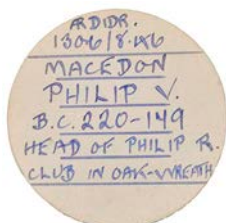 ARDIDR.
1306/8.46
MACEDON
PHILIP V.
B.C. 220-149
HEAD OF PHILIP R.
CLUB IN OAK-WREATH